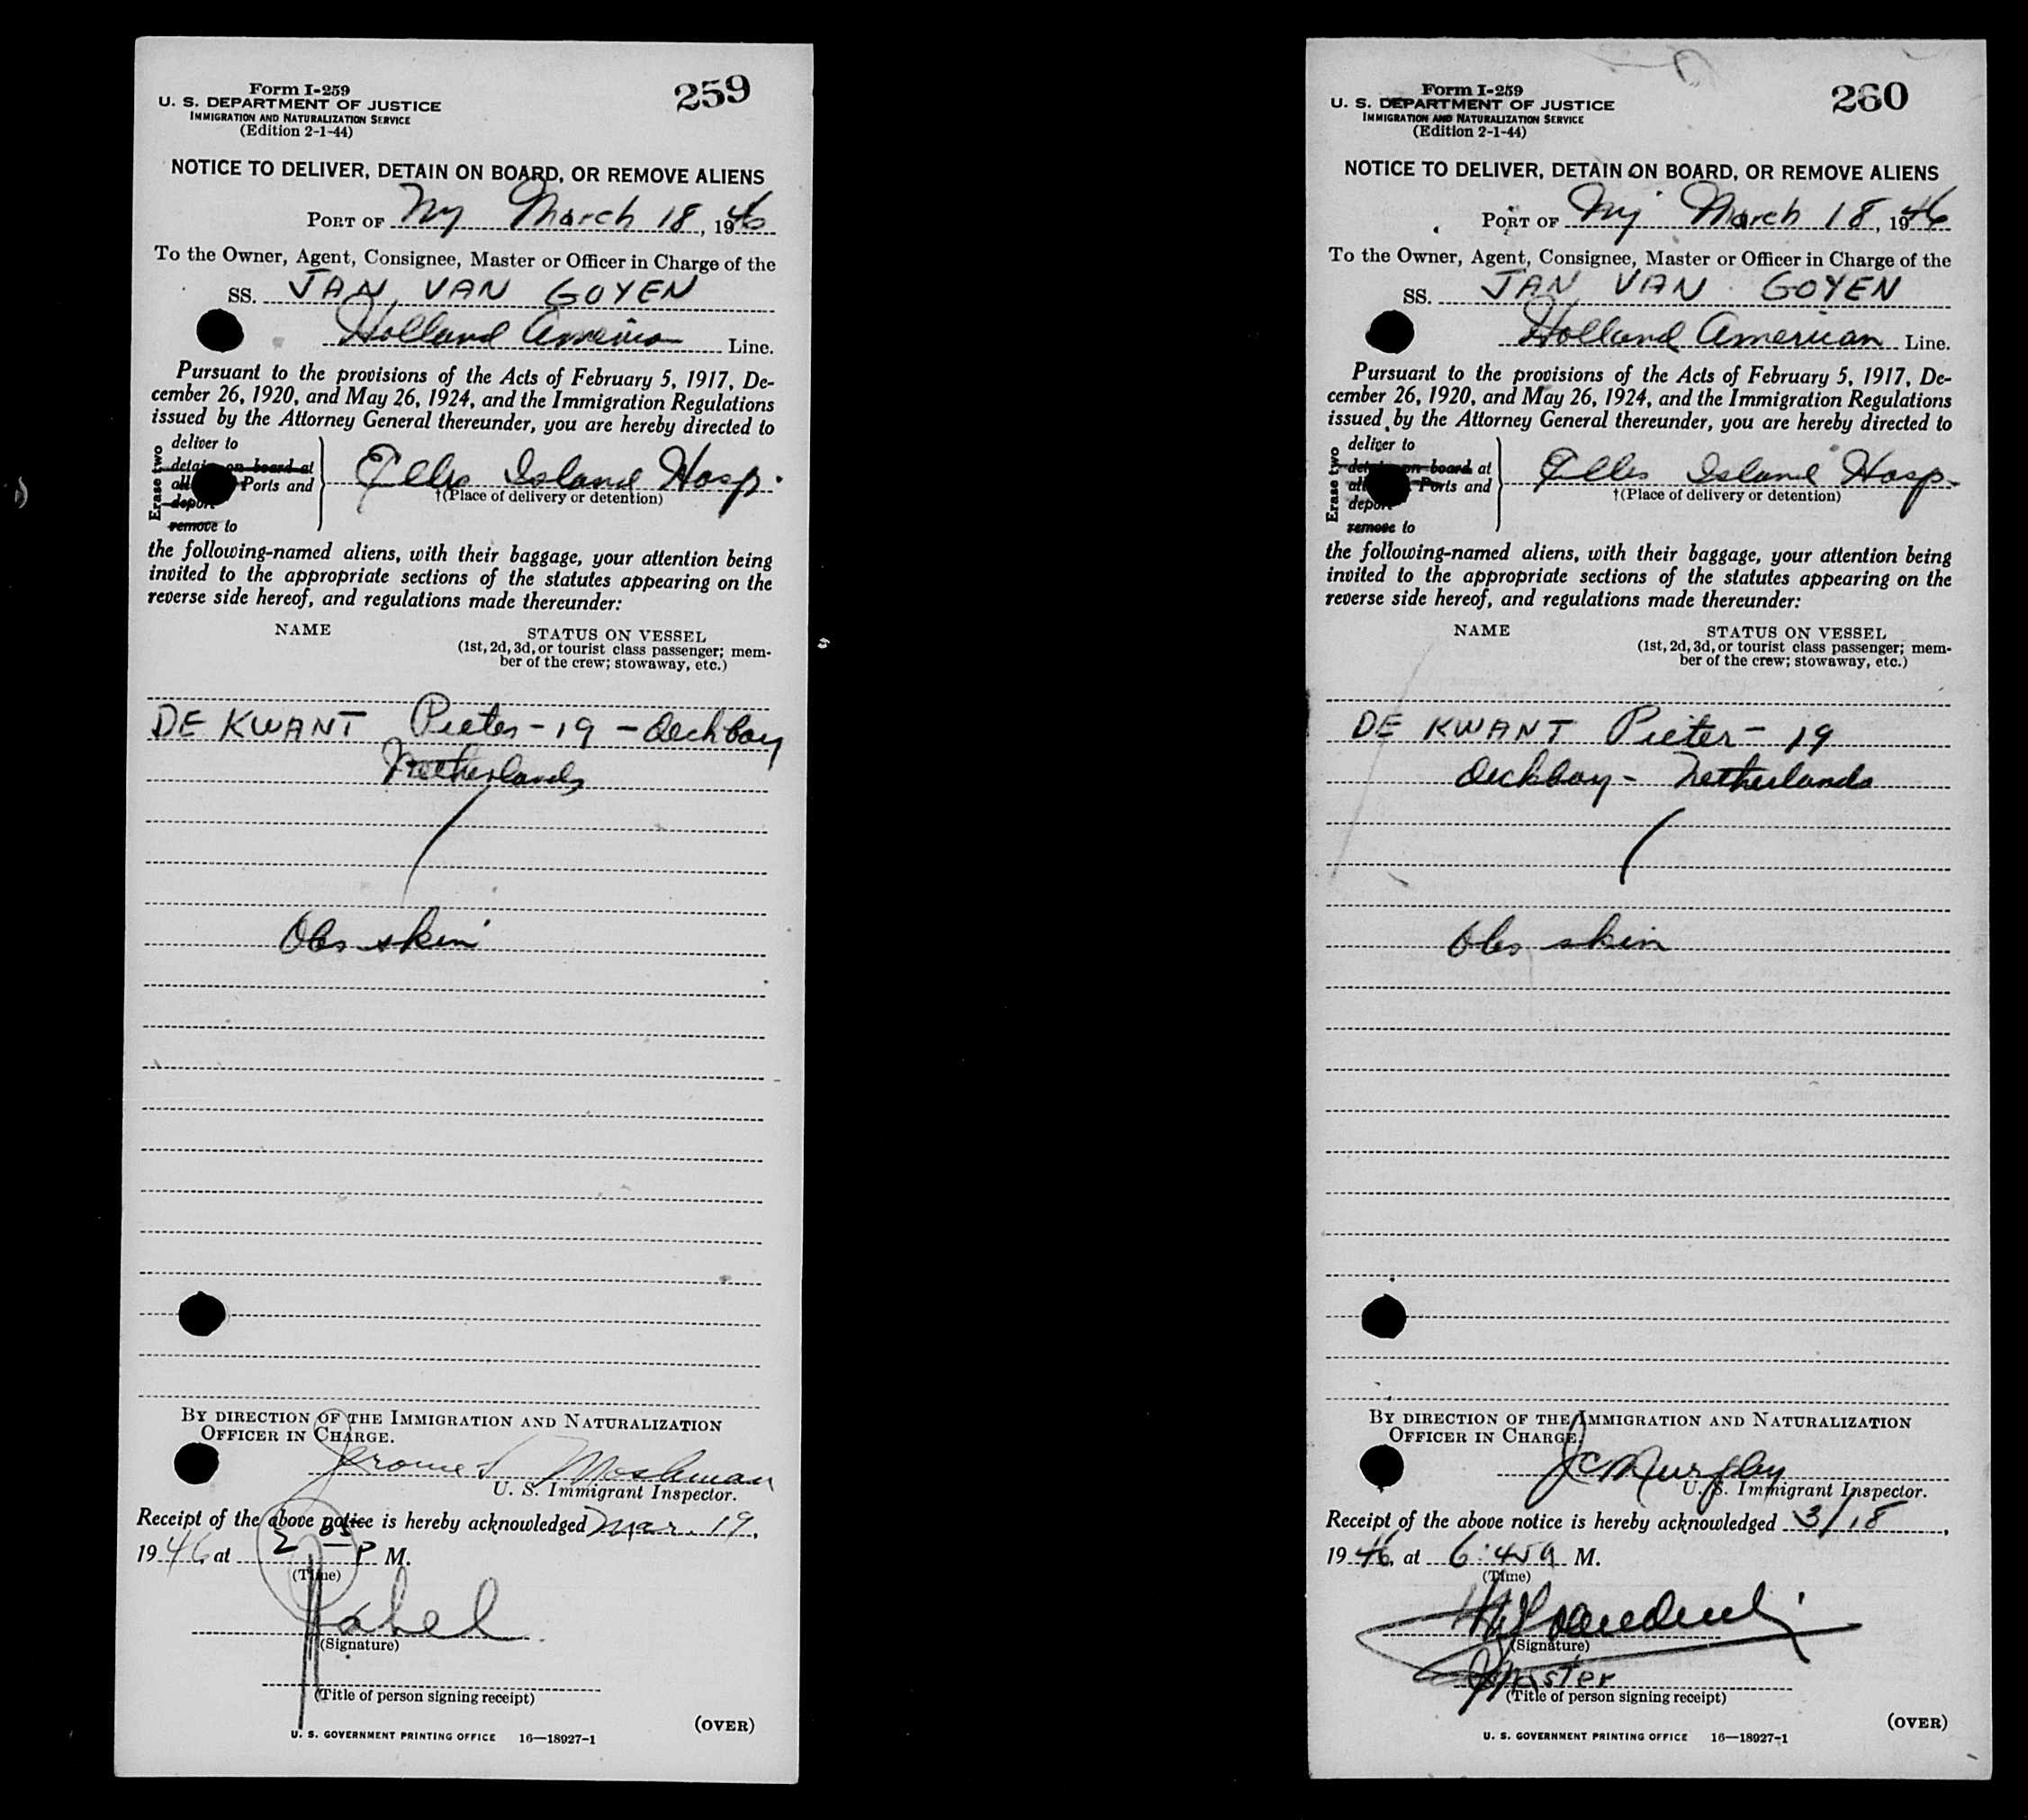 259
Form I-259
U. S. DEPARTMENT OF JUSTICE
IMMIGRATION AND NATURALIZATION SERVICE
(Edition 2-1-44)
NOTICE TO DELIVER, DETAIN ON BOARD, OR REMOVE ALIENS
PORT OF Ny March 18, 1946
To the Owner, Agent, Consignee, Master or Officer in Charge of the
SS. JAN VAN GOYEN
Holland American Line.
Pursuant to the provisions of the Acts of February 5, 1917, De-
cember 26, 1920, and May 26, 1924, and the Immigration Regulations
issued by the Attorney General thereunder, you are hereby directed to
Erase two
deliver to
detain on board at
all Ports and
deport
remove to
Ellis Island Hosp.
†(Place of delivery or detention)
the following-named aliens, with their baggage, your attention being
invited to the appropriate sections of the statutes appearing on the
reverse side hereof, and regulations made thereunder:
NAME STATUS ON VESSEL
(1st, 2d, 3d, or tourist class passenger; mem-
ber of the crew; stowaway, etc.)
DE KWANT Pieter - 19 - deckboy
Netherlands
Obs skin
BY DIRECTION OF THE IMMIGRATION AND NATURALIZATION
OFFICER IN CHARGE.
Jerome Moshman
U. S. Immigrant Inspector.
Receipt of the above notice is hereby acknowledged Mar. 19,
1946, at 2 05 P M.
(Time)
(Signature)
(Title of person signing receipt)
(OVER)
U. S. GOVERNMENT PRINTING OFFICE 16—18927-1
260
Form I-259
U. S. DEPARTMENT OF JUSTICE
IMMIGRATION AND NATURALIZATION SERVICE
(Edition 2-1-44)
NOTICE TO DELIVER, DETAIN ON BOARD, OR REMOVE ALIENS
PORT OF Ny March 18, 1946
To the Owner, Agent, Consignee, Master or Officer in Charge of the
SS. JAN VAN GOYEN
Holland American Line.
Pursuant to the provisions of the Acts of February 5, 1917, De-
cember 26, 1920, and May 26, 1924, and the Immigration Regulations
issued by the Attorney General thereunder, you are hereby directed to
Erase two
deliver to
detain on board at
all Ports and
deport
remove to
Ellis Island Hosp.
†(Place of delivery or detention)
the following-named aliens, with their baggage, your attention being
invited to the appropriate sections of the statutes appearing on the
reverse side hereof, and regulations made thereunder:
NAME STATUS ON VESSEL
(1st, 2d, 3d, or tourist class passenger; mem-
ber of the crew; stowaway, etc.)
DE KWANT Pieter - 19
deckboy - Netherlands
Obs skin
BY DIRECTION OF THE IMMIGRATION AND NATURALIZATION
OFFICER IN CHARGE.
JC Murphy
U. S. Immigrant Inspector.
Receipt of the above notice is hereby acknowledged 3/18,
1946, at 6:45 a M.
(Time)
(Signature)
Master
(Title of person signing receipt)
(OVER)
U. S. GOVERNMENT PRINTING OFFICE 16—18927-1